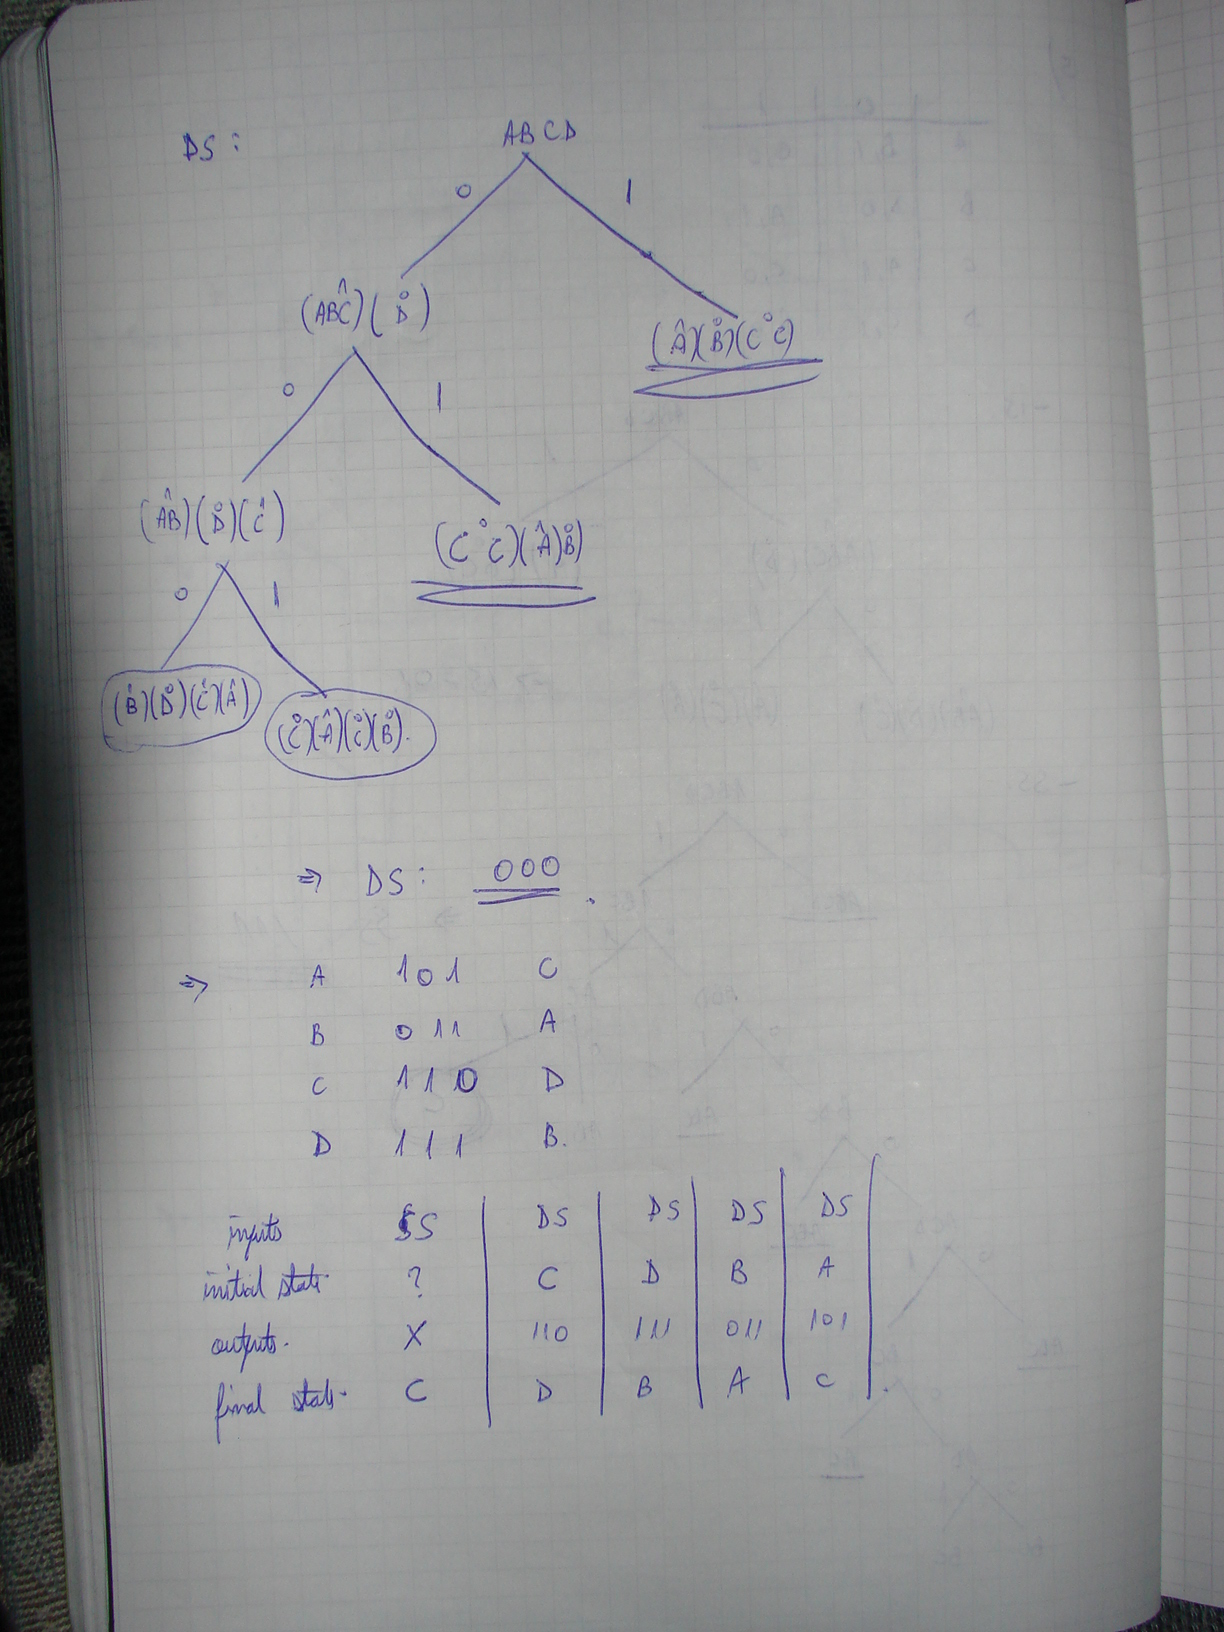 DS :
ABCD
0 1
(ABC)^1 (D)^0
(A)^1(B)^0(CC)^0
0 1
(AB)^1(D)^0(C)^1
(CC)^0(A)^1(B)^0
0 1
(B)^1(D)^0(C)^1(A)^1
(C)^0(A)^1(C)^0(B)^0.
⇒ DS : 000 .
⇒ A 101 C
B 011 A
C 110 D
D 111 B.
inputs SS DS DS DS DS
initial state ? C D B A
outputs. X 110 111 011 101
final state. C D B A C .